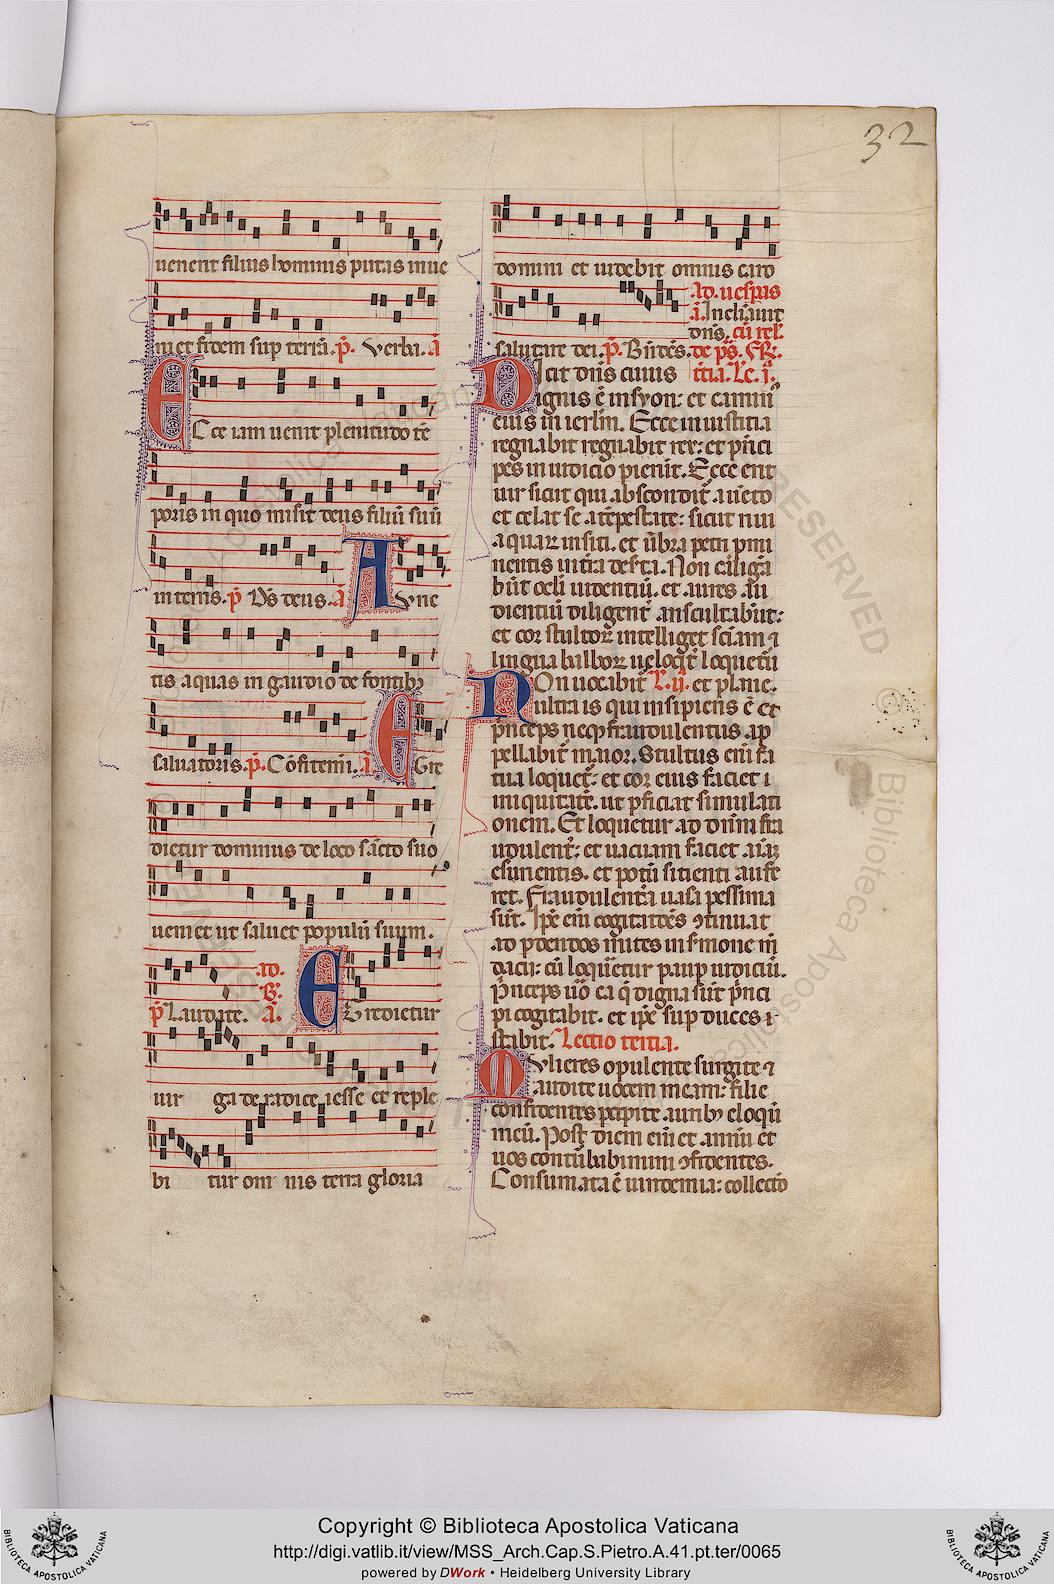 32
uenerit filius hominis putas inue
niet fidem sup terrā. p̄. Verba. ā
Ecce iam uenit plenitudo tē
poris in quo misit deus filiū suū
in terris. p̄ Ds deus. ā Aurie
tis aquas in gaudio de fontibꝫ
saluatoris. p̄. Cōfitemī. ā Egre
dietur dominus de loco sācto suo
ueniet ut saluet populū suum.
p̄ Laudate. ad. B. ā. Egredietur
uir ga de radice iesse et reple
bi tur om nis terra gloria
domini et uidebit omnis caro
ad. uesꝑas
ā. Inclinauit
dn̄s. cū rel.
salutare dei. p̄. Bn̄d̄s. de p̄s. FR.
Dicit dn̄s cuius t̄tia. Lc̄. j.
ignis ē in syon: et caminꝰ
eius in ierlm̄. Ecce in iustitia
regnabit regnabit rex: et p̄nci
pes in iudicio preerūt. Ecce erit
uir sicut qui abscondit̄ a uēto
et celat se a tēpestate: sicut riui
aquaꝝ in siti. et ūbra petre ꝓmi
nentis in t̄ra des̄ta. Non caligā
būt ocli uidentiū. et aures au
dientiū diligent̄ auscultabūt:
et cor stultoꝝ intelliget sciām ⁊
lingua balboꝝ uelocit̄ loquetū
Non uocabit̄ L. ij. et plane.
ultra is qui insipiens ē et
princeps neqꝫ fraudulentus ap
pellabit̄ maior. Stultus eni fa
tua loquet̄: et cor eius faciet i
niquitatē. ut ꝑficiat simulati
onem. Et loquetur ad dn̄m fra
udulent̄: et uacuam faciet aīaꝫ
esurientis. et potū sitienti aufe
ret. Fraudulenti uasa pessima
sūt. Ipē eni cogitatōēs ꝯcinuat
ad ꝑdendos mites in ꝰmone m̄
dacii: cū loqueretur pauꝑ iudiciū.
Princeps uō ea q̄ digna sūt p̄nci
pi cogitabit. et ipē sup duces ⁊
stabit. Lectio tertia.
Mulieres opulente surgite ⁊
audite uocem meam: filie
confidentes ꝑcipite auribꝫ eloqū
meū. Post diem eni et annū et
uos conturbabimini ꝯfidentes.
Consumata ē uindemia: collectō
Copyright © Biblioteca Apostolica Vaticana
http://digi.vatlib.it/view/MSS_Arch.Cap.S.Pietro.A.41.pt.ter/0065
powered by DWork • Heidelberg University Library
BIBLIOTECA APOSTOLICA VATICANA
BIBLIOTECA APOSTOLICA VATICANA